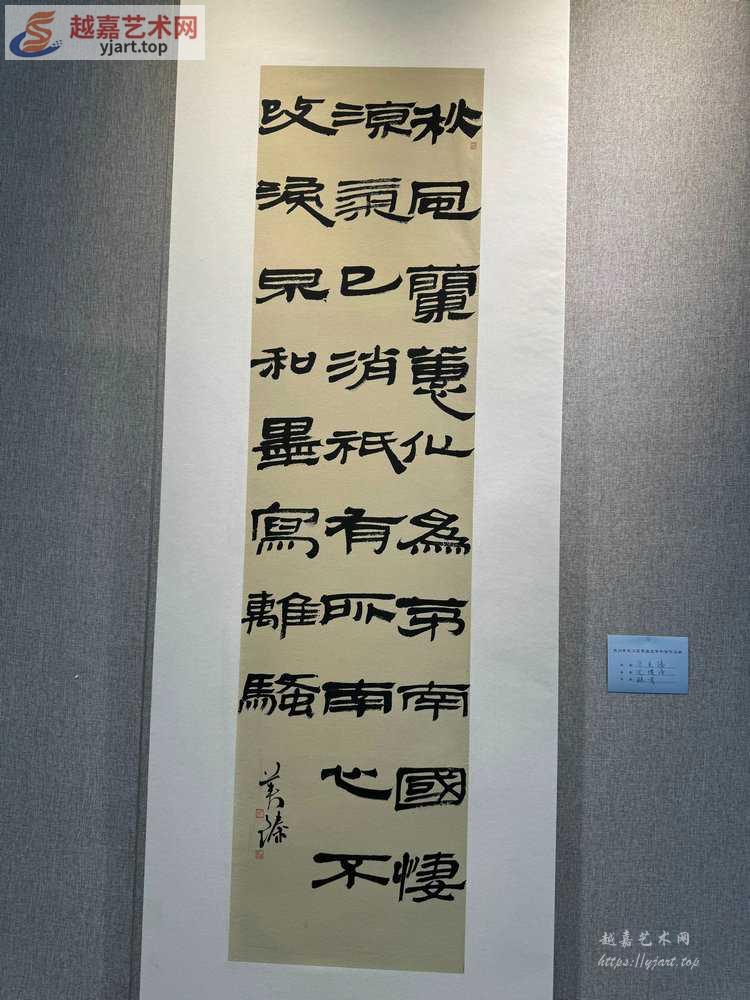 越嘉艺术网
yjart.top
秋風蘭蕙化為茅南國悽
涼氣已消祇有所南心不
改淚泉和墨寫離騷
美
越嘉艺术网
https://yjart.top